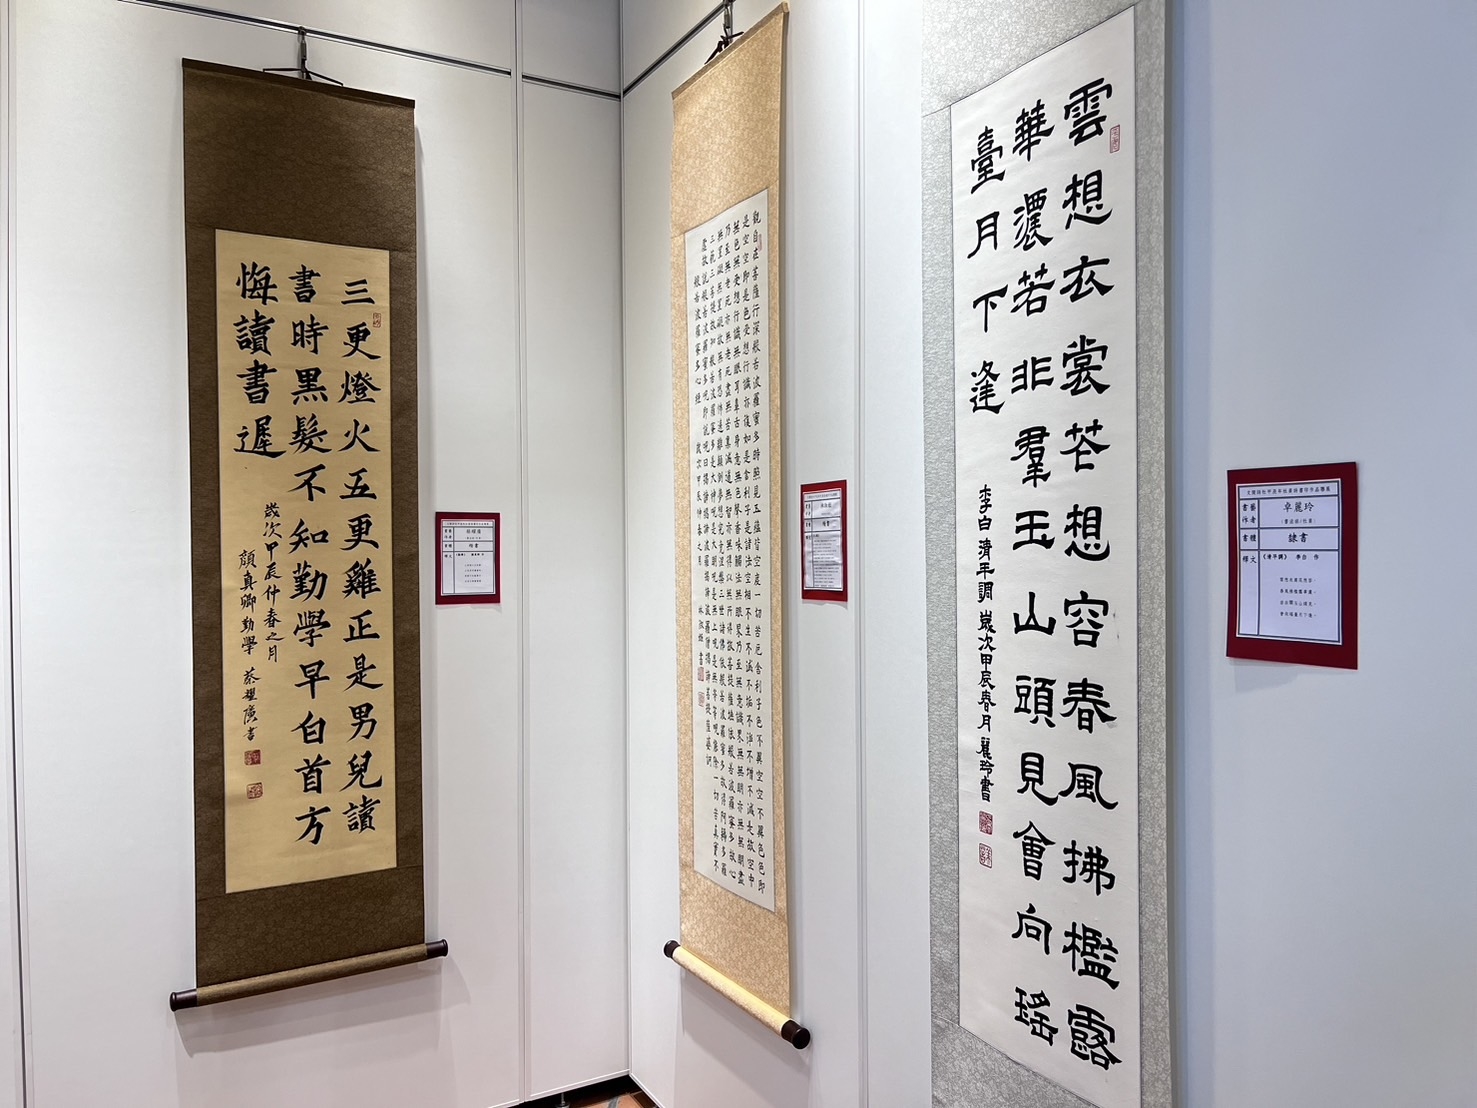 三更燈火五更雞正是男兒讀
書時黑髮不知勤學早白首方
悔讀書遲
歲次甲辰仲春之月
顏真卿勤學 蔡耀廣書
楷書
觀自在菩薩行深般若波羅蜜多時照見五蘊皆空度一切苦厄舍利子色不異空空不異色色即
是空空即是色受想行識亦復如是舍利子是諸法空相不生不滅不垢不淨不增不減是故空中
無色無受想行識無眼耳鼻舌身意無色聲香味觸法無眼界乃至無意識界無無明亦無無明盡
乃至無老死亦無老死盡無苦集滅道無智亦無得以無所得故菩提薩埵依般若波羅蜜多故心
無罣礙無罣礙故無有恐怖遠離顛倒夢想究竟涅槃三世諸佛依般若波羅蜜多故得阿耨多羅
三藐三菩提故知般若波羅蜜多是大神咒是大明咒是無上咒是無等等咒能除一切苦真實不
虛故說般若波羅蜜多咒即說咒曰揭諦揭諦波羅揭諦波羅僧揭諦菩提薩婆訶
般若波羅蜜多心經 歲次甲辰仲春之月 林淑
楷書
雲想衣裳花想容春風拂檻露
華濃若非羣玉山頭見會向瑤
臺月下逢
李白清平調 歲次甲辰春月麗玲書
書藝作者 卓麗玲
書體 隸書
釋文 《清平調》 李白 作
雲想衣裳花想容，
春風拂檻露華濃。
若非群玉山頭見，
會向瑤臺月下逢。